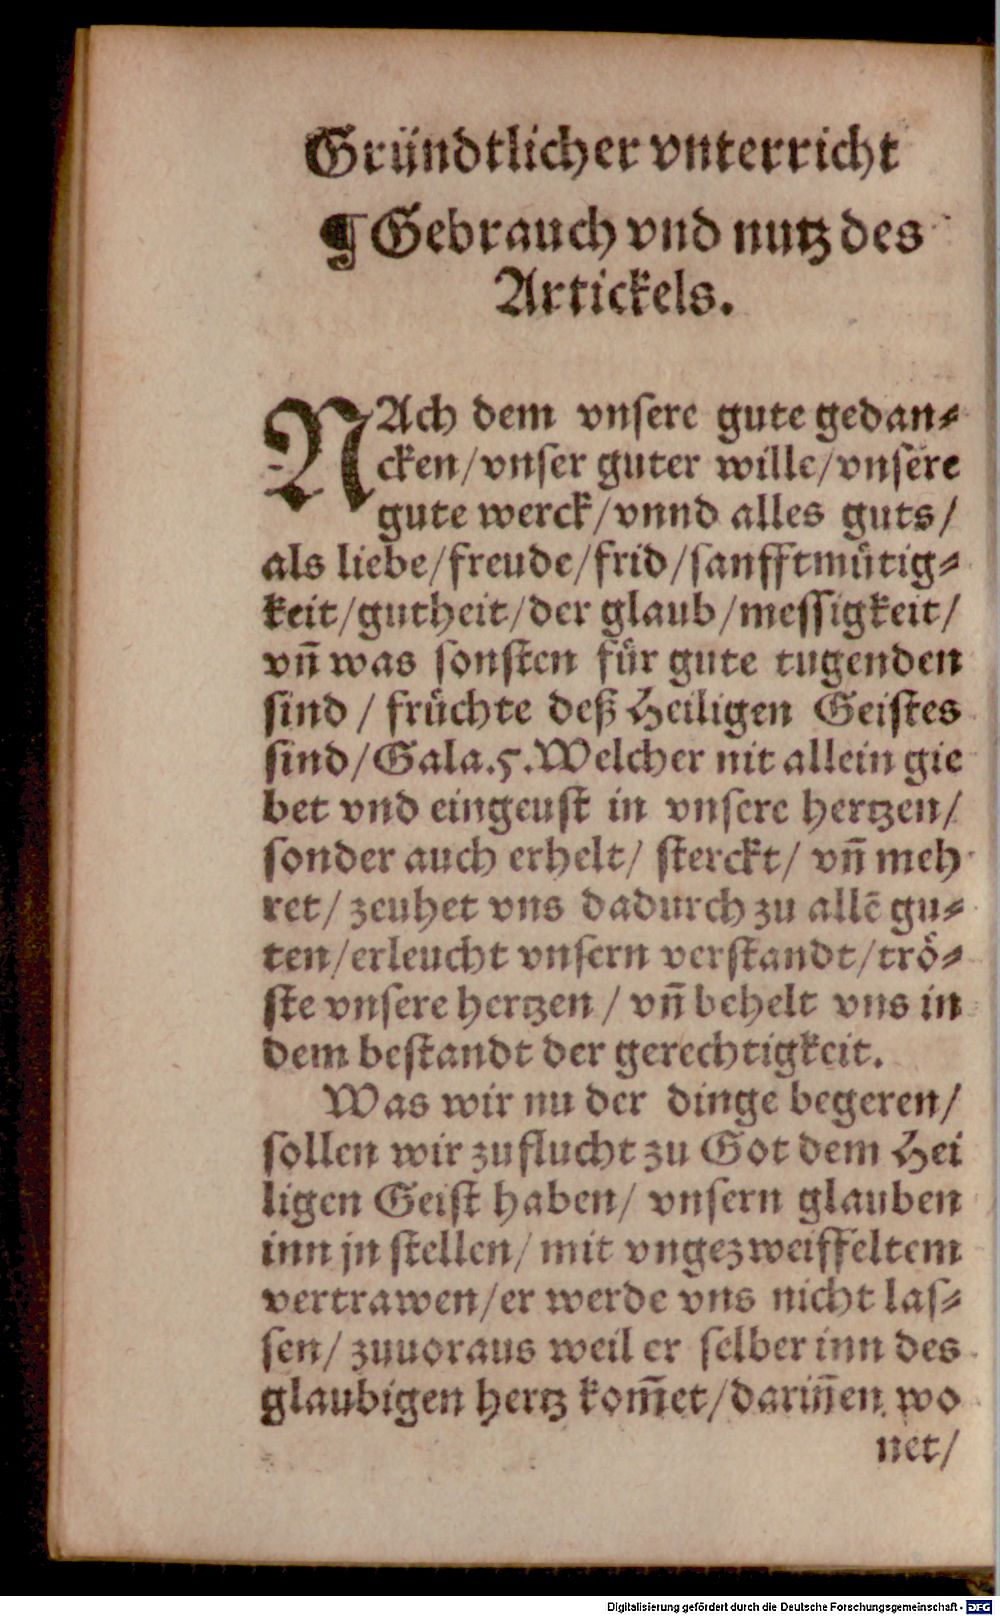 Gründtlicher vnterricht
¶ Gebrauch vnd nutz des
Artickels.
NAch dem vnsere gute gedan⸗
cken/vnser guter wille/vnsere
gute werck/vnnd alles guts/
als liebe/freude/frid/sanfftmütig⸗
keit/gutheit/der glaub/messigkeit/
vñ was sonsten für gute tugenden
sind / früchte deß Heiligen Geistes
sind/Gala.5.Welcher nit allein gie
bet vnd eingeust in vnsere hertzen/
sonder auch erhelt/ sterckt/ vñ meh
ret/ zeuhet vns dadurch zu allē gu⸗
ten/erleucht vnsern verstandt/trö⸗
ste vnsere hertzen / vñ behelt vns in
dem bestandt der gerechtigkeit.
Was wir nu der dinge begeren/
sollen wir zuflucht zu Got dem Hei
ligen Geist haben/ vnsern glauben
inn jn stellen/ mit vngezweiffeltem
vertrawen/er werde vns nicht las⸗
sen/ zuuoraus weil er selber inn des
glaubigen hertz kom̄et/darin̄en wo
net/
Digitalisierung gefördert durch die Deutsche Forschungsgemeinschaft - DFG